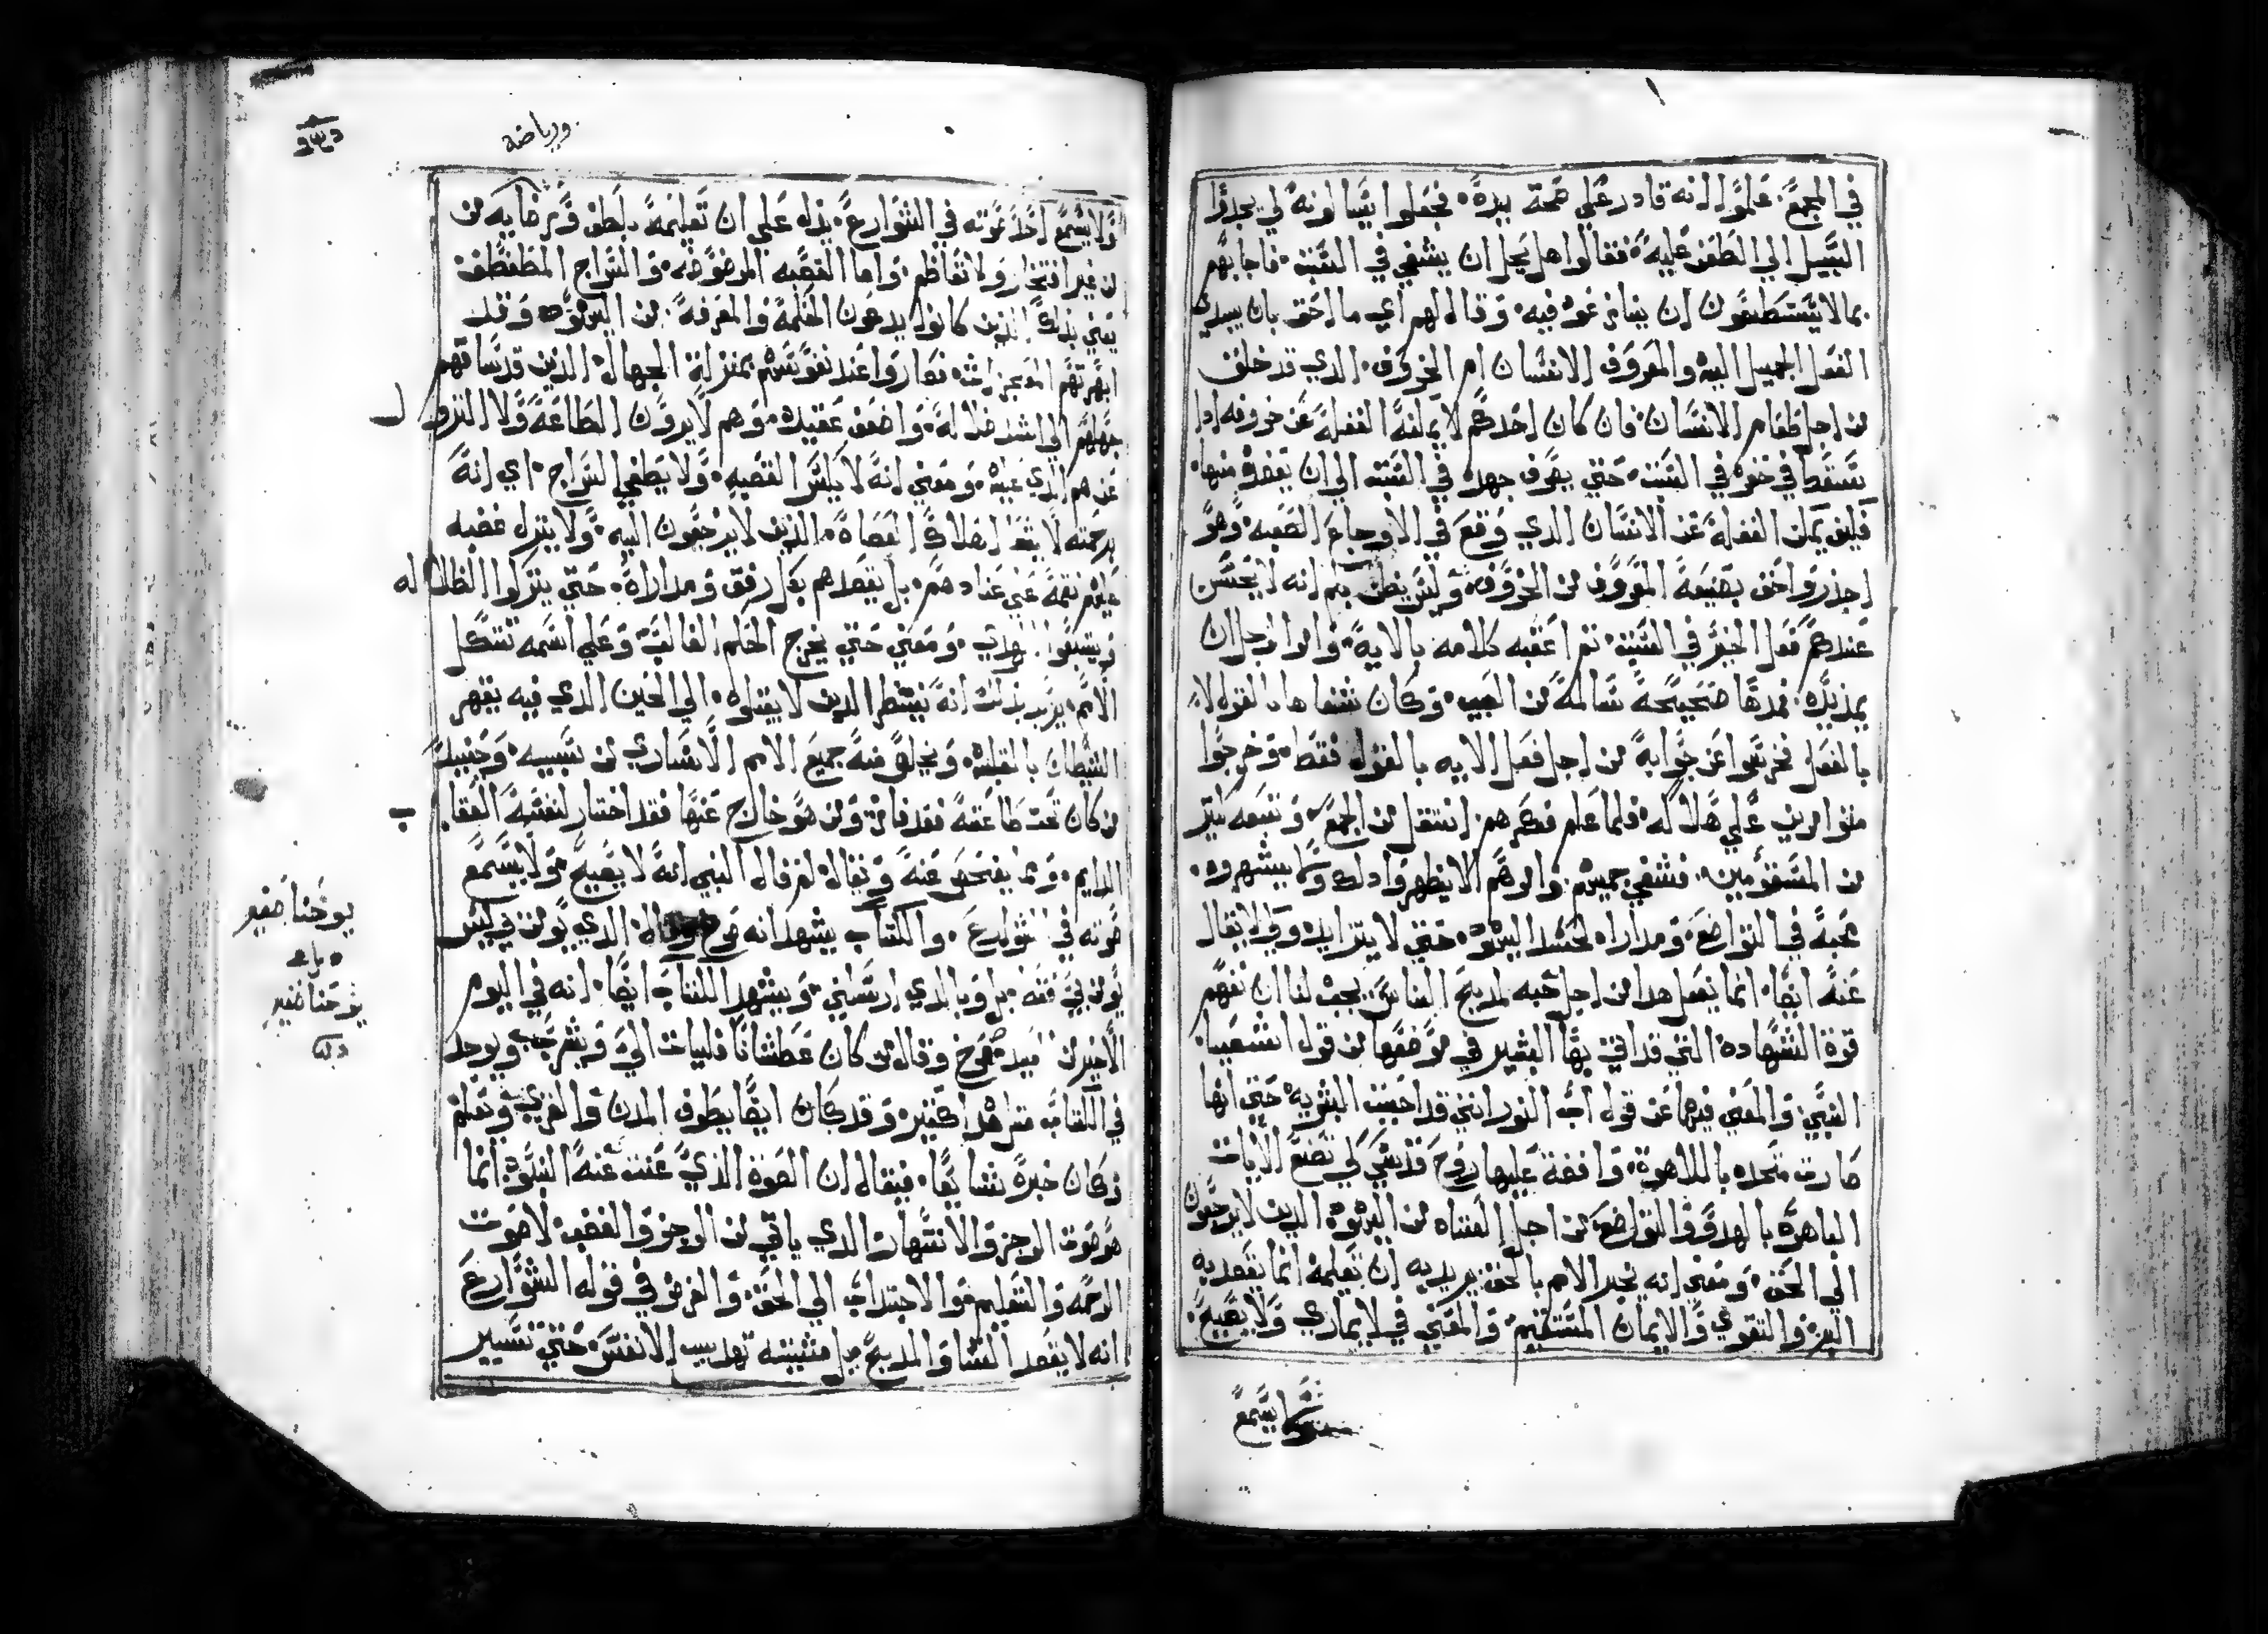 في المجمع. علموا انه قادر علي صحة يده. فجعلوا يتسالونه لي يجدوا
السبيل الي الطعن عليه. فقالوا هل يحل ان يشفي في السبت. فاجابهم
بما لا يستطيعون ان ينازعوه فيه. وقال لهم اي ما احق بان يسدي
الفعل الجميل اليه والمعروف الانسان ام الخروف. الدي قد خلق
من اجل طعام الانسان. فان كان احدكم لا يمكنه الغفله عن خروفه ادا
سقط في حفره في السبت. حتي يصرف جهده في السبت الي ان يصعده منها.
فكيف يمكن الغفله عن الانسان الدي وقع في الاوجاع الصعبه. وهو
اجدر واحق بصنيعة المعروف من الخروف. وليس يظن بكم انه لا يحسن
عندكم فعل الخير في السبت. تم اعقبه كلامه بالايه. وامر الرجل ان
يمد يده. فمدها صحيحة سالمة من العيب. وكان شفاها بالقول لا
بالفعل. فخرسوا عن جوابه من اجل فعل الايه بالقول فقط. وخرجوا
متوامرين علي هلاكه. فلما علم فكرهم. انتقل من المجمع. وتبعه كتير
من المسقومين. فشفي جميعهم. وامرهم الا يظهروا دلك ولا يشهروه.
محبة في التواضع. ومداراه لحسد اليهود. حتي لا يتزايد. ولي لا يقال
عنه ايضا. انما يفعل هدا من اجل محبه لمديح الناس. يجب لنا ان نفهم
قوة الشهاده التي قد اتي بها البشير في موضعها من قول اشعيا
النبي. والمعني فيها عن قول اب النور انني قد احببت البشريه حتي انها
صارت متحده باللاهوت. وافضت عليها روح قدسي كي تصنع الايات
الباهرة بالهدو والتواضع من اجل افتناه من اليهود الدين لا يرجعون
الي الحق. ومعني انه يخبر الامم بالحق. يريد به ان تعليمه انما يقصد به
البر. والتقوي والايمان المستقيم. والمعني في لا يماري ولا يصيح.
ولا يسمع
ورياضه
ولا يسمع احد صوته في الشوارع. يدل علي ان تعليمه بلطف
من غير افتخار ولا تعاظم. واما القصبه المرضوضه. والسراج المطفطف
يعني بدلك الدين كانوا يدعون الحكمة والمعرفة. من اليهود وقد
ابهرتهم المعجزات. فصاروا عند نفوسهم بمنزلة الجهال. الدين قد ساقهم
جهلهم الي اشد ضلاله. واضعف عقيده. وهم لا يرون الطاعة ولا النزول
عن هم الدي عليه. ومعني انه لا يكسر القصبه. ولا يطفي السراج. اي انه
برحمته لا يشا اهلاك العصاة. الدين لا يرجعون اليه. ولا ينزل غضبه
عليهم نقمة عن عنادهم. بل يقصدهم بكل رفق ومداراة. حتي يتركوا الضلاله
ويتبعوا الهدي. ومعني حتي يخرج الحكم الغالب. وعلي اسمه تتكل
الامم. يريد بدلك انه ينتظر الدين لا يقبلوه. الي الحين الدي فيه يقهر
الشيطان بالغلبة. ويخلص منه جميع الامم الاساري من سبيه. وحينيد
من كان تحت طاعته فقد فاز. ومن هو خارج عنها فقد اختار لنفسه العقاب
الدايم. ومما يفحص عنه ويقال لم قال النبي انه لا يصيح. ولا يسمع
صوته في الشوارع. والكتاب يشهد انه صرخ وقال الدي يومن بي ليس
يومن بي فقط. بل وبالدي ارسلني. ويشهد الكتاب ايضا. انه في اليوم
الاخير من العيد صرخ وقال من كان عطشانا فليات الي ويشرب. ويوجد
في الكتاب متل هدا كتير. وقد كان ايضا يطوف المدن والقري ويعلم
وكان خبره شايعا. فيقال ان الصوت الدي عنت عنه النبوة. انما
هو صوت الزجر والانتهار الدي ياتي من الرجز والغضب. لا صوت
الرحمه والتعليم والاجتداب الي الحق. والغرض في قوله الشوارع
انه لا يقصد الثنا والمديح بل مشيته تهديب الانفس حتي تسير
يوحنا
يوحنا